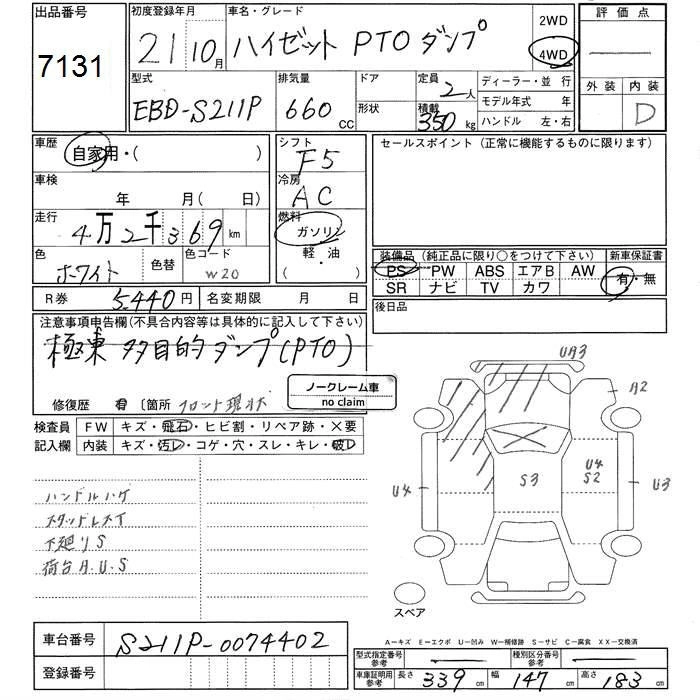 出品番号
7131
初度登録年月
21 10月
車名・グレード
ハイゼット PTO ダンプ
2WD
4WD
評価点
外装 内装
D
型式
EBD-S211P
排気量
660 CC
ドア
形状
定員
2人
積載
350 kg
ディーラー・並 行
モデル年式 年
ハンドル 左・右
車歴
自家用・( )
シフト
F5
セールスポイント (正常に機能するものに限ります)
車検
年 月( 日)
冷房
AC
走行
4万2千369 km
燃料
ガソリン
軽・油
( )
色
ホワイト
色替
色コード
W20
装備品 (純正品に限り○をつけて下さい)
PS PW ABS エアB AW
SR ナビ TV カワ
新車保証書
有・無
R券 5.440円
名変期限 月 日
後日品
注意事項申告欄(不具合内容等は具体的に記入して下さい)
極東 多目的ダンプ(PTO)
ノークレーム車
no claim
修復歴 有 〔箇所 フロント現状
検査員
記入欄
FW キズ・飛石・ヒビ割・リペア跡・×要
内装 キズ・汚レ・コゲ・穴・スレ・キレ・破レ
ハンドルハゲ
スタッドレスT
下廻りS
荷台A.U.S
UA3
A2
U4
S3
U4
S2
U3
スペア
A-キズ E-エクボ U-凹み W-補修跡 S-サビ C-腐食 XX-交換済
車台番号
S211P-0074402
登録番号
型式指定番号
参考
種別区分番号
参考
車庫証明用
参考
長さ 339 cm
幅 147 cm
高さ 183 cm